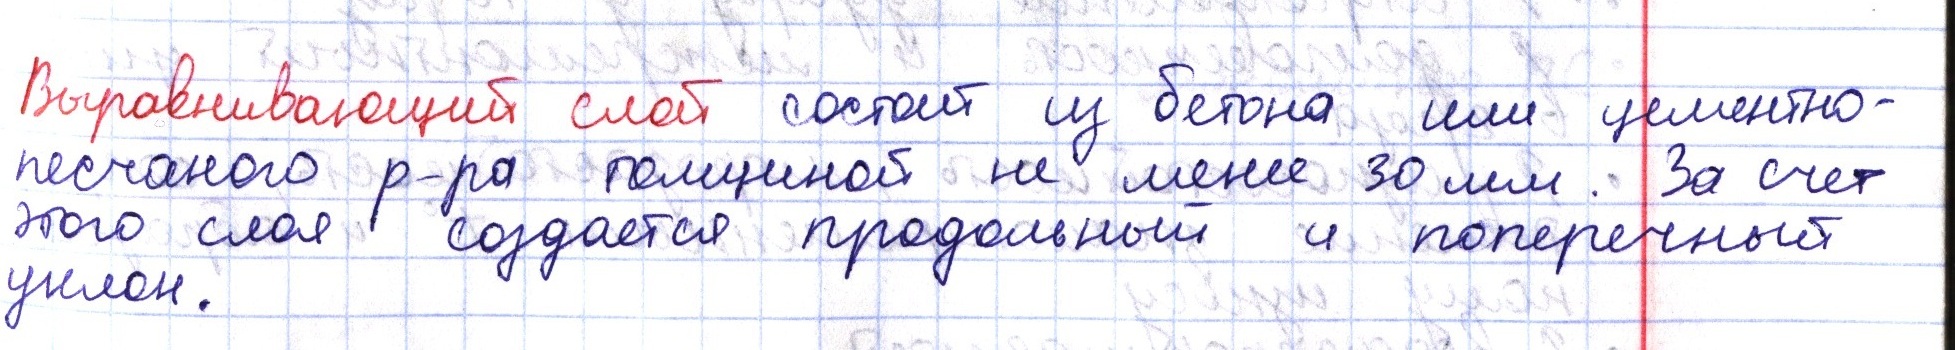 Выравнивающий слой состоит из бетона или цементно-
песчаного р-ра толщиной не менее 30 мм. За счет
этого слоя создается продольный и поперечный
уклон.